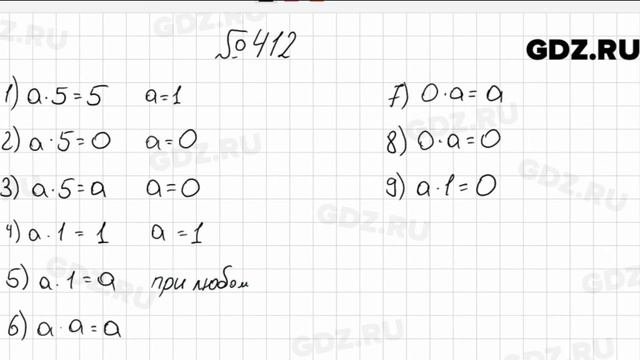 №412
GDZ.RU
1) a·5=5 a=1
2) a·5=0 a=0
3) a·5=a a=0
4) a·1=1 a=1
5) a·1=a при любом
6) a·a=a
7) 0·a=a
8) 0·a=0
9) a·1=0
GDZ.RU
GDZ.RU
GDZ.RU
GDZ.RU
GDZ.RU
GDZ.RU
GDZ.RU
GDZ.RU